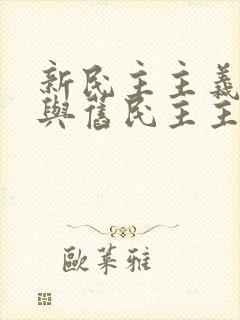 新民主主義
與舊民主主
歐萊雅